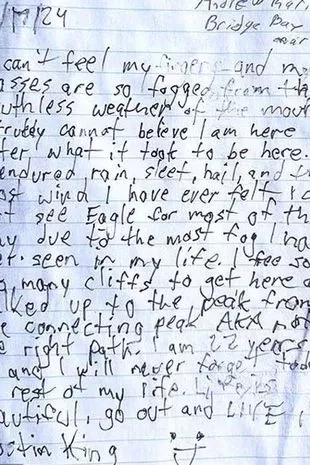 /17/24
Andrew
Bridge Bay
can't feel my fingers and m
asses are so fogged from th
uthless weather of the mou
truly cannot believe I am here
ter what it took to be here.
endured rain, sleet, hail, and t
ost wind I have ever felt I c
t see Eagle for most of th
ay due to the most fog I ha
et seen in my life. I
g many cliffs to get here a
lked up to the peak from
e connecting peak AKA not
e right path. I am 22 years
and I will never forget tod
rest of my life. Life is
autiful, go out and LIVE,
stin King